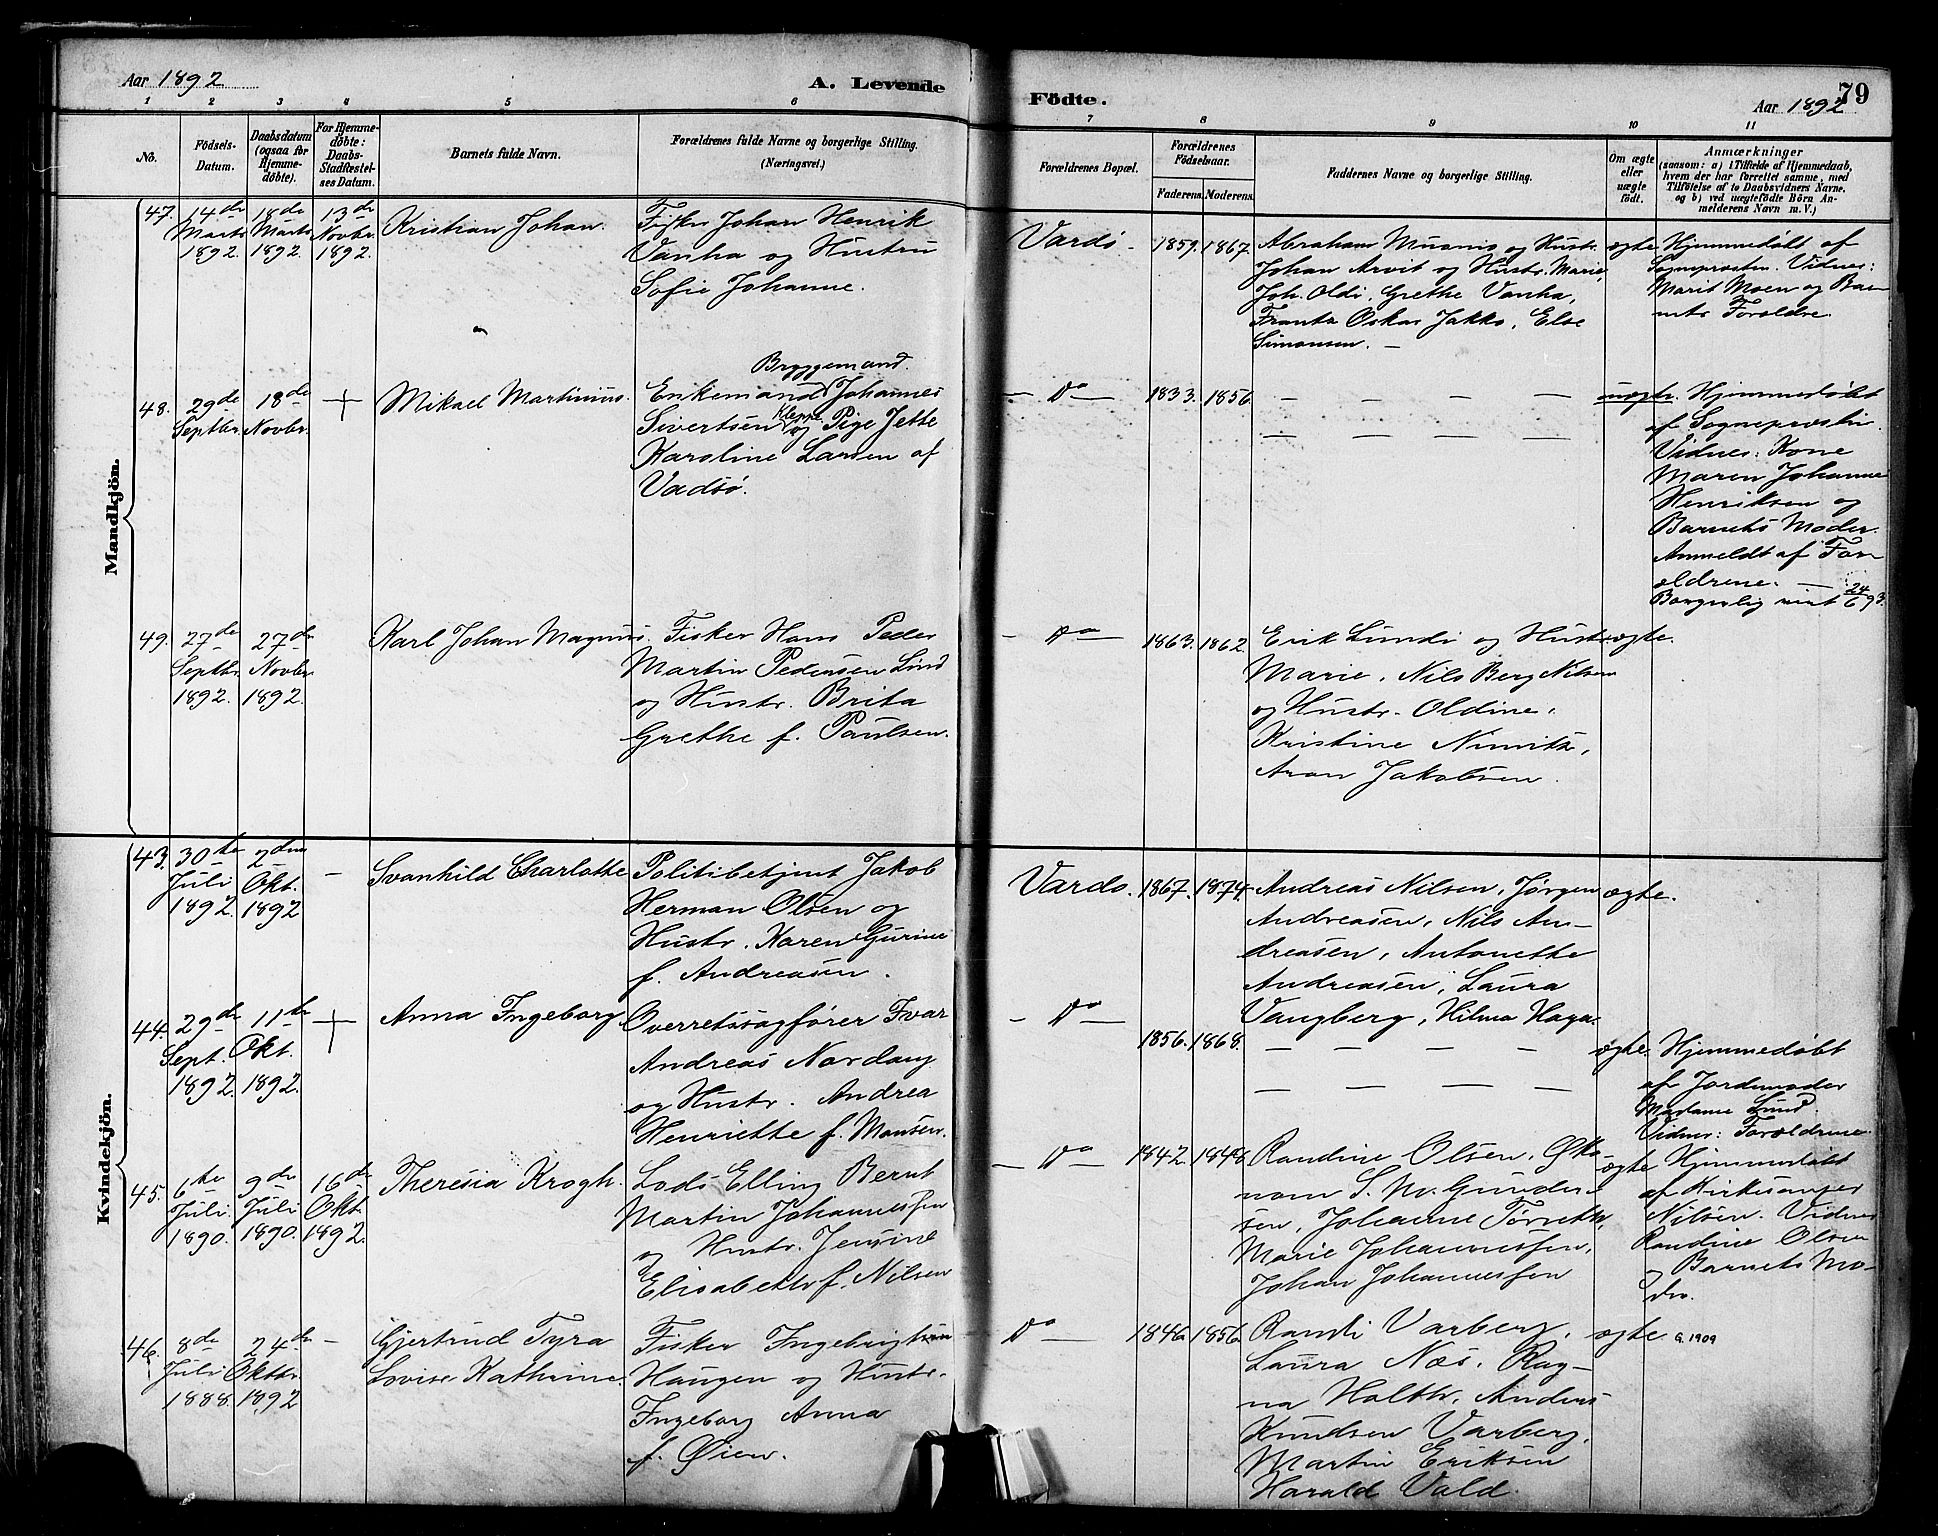 Aar 1892
A. Levende
Födte.
79
Aar 1892
1 2 3 4 5 6 7 8 9 10 11
No.
Födsels-
Datum.
Daabsdatum
(ogsaa for
Hjemme-
döbte).
For Hjemme-
döbte:
Daabs-
Stadfæstel-
ses Datum.
Barnets fulde Navn.
Forældrenes fulde Navne og borgerlige Stilling.
(Næringsvei.)
Forældrenes Bopæl.
Forældrenes
Födselsaar.
Faderens. Moderens.
Faddernes Navne og borgerlige Stilling.
Om ægte
eller
uægte
födt.
Anmærkninger
(saasom: a) i Tilfælde af Hjemmedaab,
hvem der har forrettet samme, med
Tilföielse af to Daabsvidners Navne,
og b) ved uægtefödte Börn An-
melderens Navn m. V.)
Mandkjön.
47.
14de
Marts
1892.
18de
Marts
1892.
13de
Novbr.
1892.
Kristian Johan.
Fisker Johan Henrik
Vanha og Hustru
Sofie Johanne.
Vardø.
1859. 1867.
Abraham Muanis og Hustr.
Johan Arvit og Hustr. Marie,
Joh. Oldi, Grethe Vanha,
Frantz Oskar Jakko, Else
Simonsen. —
ægte
Hjemmedøbt af
Sogneprosten. Vidner:
Marit Moen og Bar-
nets Foreldre.
48.
29de
Septbr.
18de
Novbr.
+
Mikael Martinius.
Bryggemand.
Enkemand Johannes
Sivertsen Kleppe og Pige Jette
Karoline Larsen af
Vadsø.
— Do —
1833. 1856.
— — — —
— — — —
uægte.
Hjemmedøbt
af Sogneprosten.
Vidner: Kone
Maren Johanne
Henriksen og
Barnets Moder.
Anmeldt af For-
ældrene. —
Borgerlig viet 24/6 93.
49.
27de
Septbr.
1892.
27de
Novbr.
1892.
Karl Johan Magnus.
Fisker Hans Peder
Martin Pedersen Lind
og Hustr. Brita
Grethe f. Paulsen.
— Do —
1863. 1862.
Erik Lundi og Hustr.
Marie, Nils Berg Nilsen
og Hustr. Oldine,
Kristine Nimitz,
Aron Jakobsen.
ægte.
Kvindekjön.
43.
30te
Juli
1892.
2den
Okt.
1892
—
Svanhild Charlotte
Politibetjent Jakob
Herman Olsen og
Hustr. Karen Gurine
f. Andreasen.
Vardø.
1867. 1874.
Andreas Nilsen, Jørgen
Andreasen, Nils An-
dreasen, Antonette
Andreasen, Laura
Vangberg, Hilma Haga.
ægte.
44.
29de
Sept.
1892.
11te
Okt.
1892.
+
Anna Ingeborg
Overretssagfører Ivar
Andreas Nordang
og Hustr. Andrea
Henriette f. Monsen.
— Do —
1856. 1868.
— — — —
— — — —
ægte.
Hjemmedøbt
af Jordemoder
Madame Lund.
Vidner: Forældrene
45.
6te
Juli
1890.
9de
Juli
1890.
16de
Okt.
1892.
Theresia Krogh.
Lods Elling Bernt
Martin Johannessen
og Hustr. Jensine
Elisabeth f. Nilsen
— Do —
1842. 1848.
Randine Olsen, Øko-
nom S. M. Gunder-
sen, Johanne Torreth,
Marie Johannessen,
Johan Johannessen
ægte
Hjemmedøbt
af Kirkesanger
Nilsen. Vidner
Randine Olsen
og Barnets Mo-
der.
46.
8de
Juli
1888.
24de
Oktbr.
1892
—
Gjertrud Tyra
Lovise Kathrine.
Fisker Ingebrigtsen
Haugen og Hustr.
Ingeborg Anna
f. Øien.
Do —
1846. 1856.
Randi Varberg,
Laura Næs, Rag-
na Holth, Anders
Knudsen Varberg,
Martin Eriksen
Harald Vold.
ægte
G. 1909